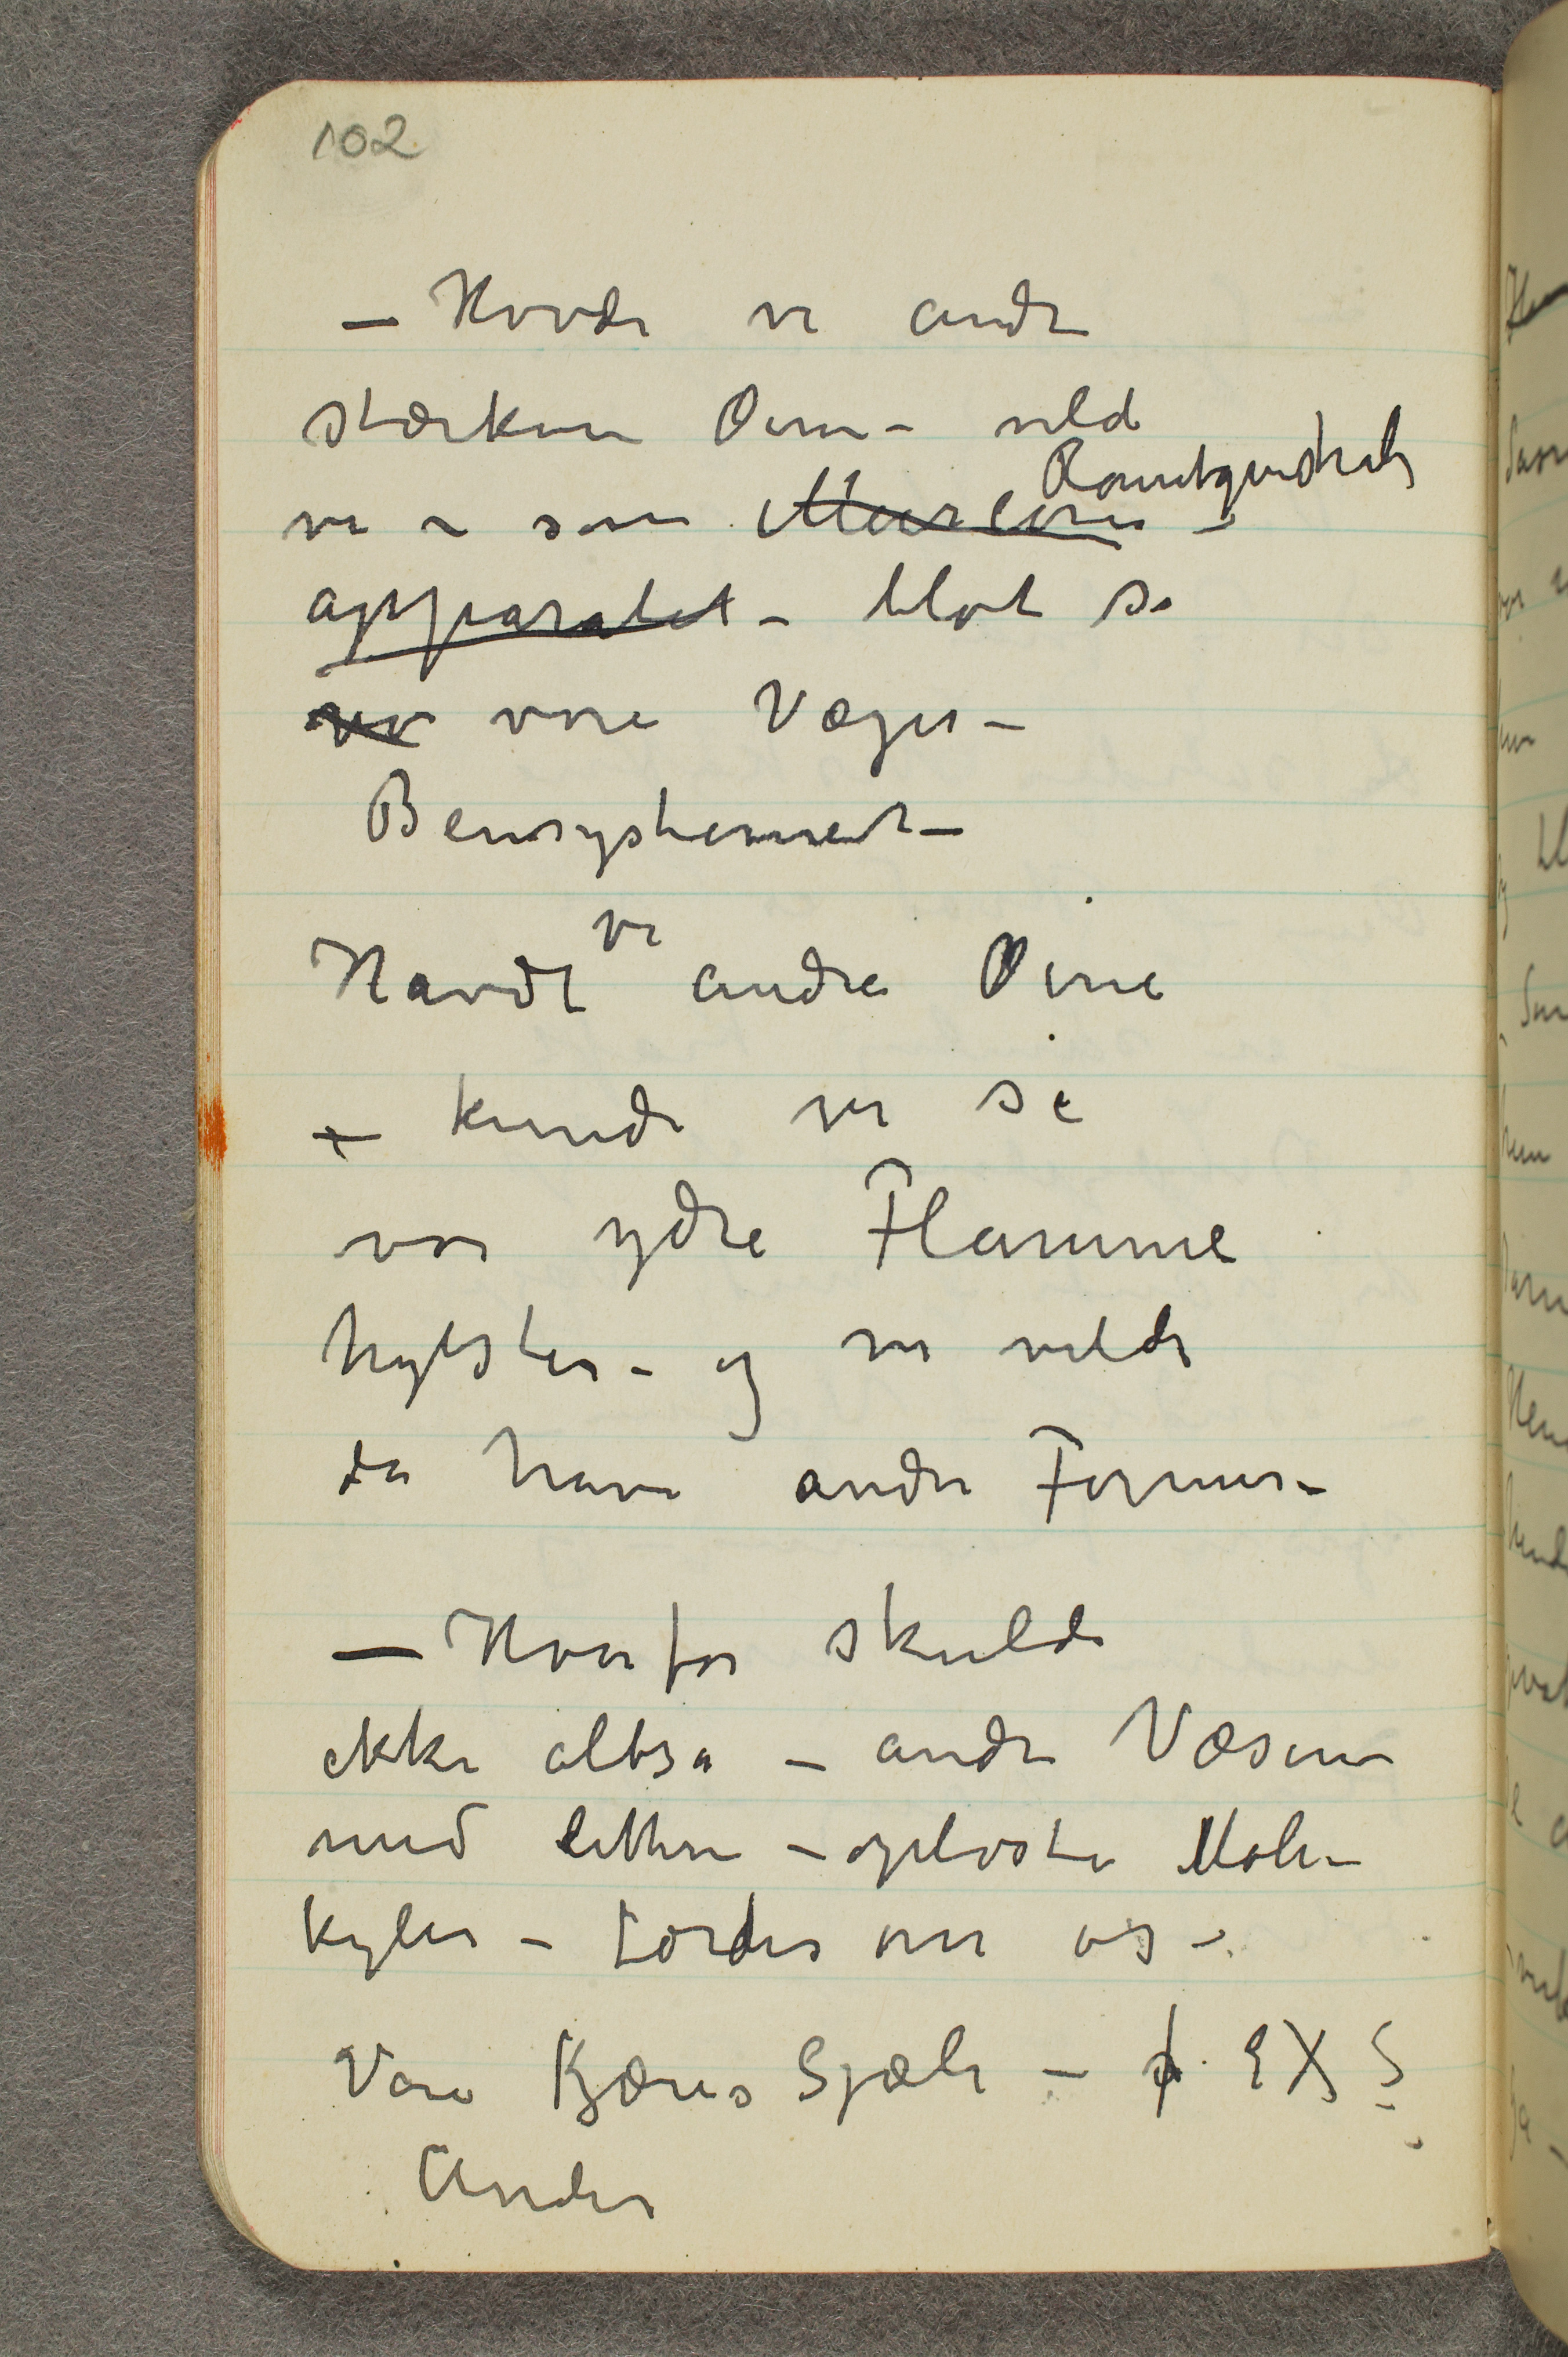 102
– Havde vi andre
stærkere Øine – vilde
vi – som Marconi – Røntgenstrale
apparatet – blot se
vo vore Væger –
Bensystemet –
Havde vi andre Øine
– kunde vi se
vor ydre Flamme
hylster – og vi vilde
da have andre Former –
– Hvorfor skulde
ikke altså – andre Væsener
med lettere – opløste Mole-
kyler – færdes om os –
Vore Kjæres Sjæle –
Ander